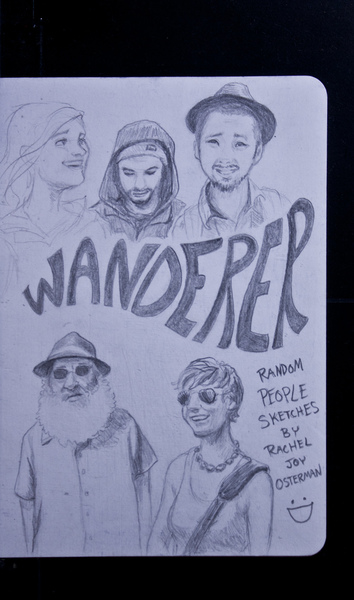 WANDERER
RANDOM
PEOPLE
SKETCHES
BY
RACHEL
JOY
OSTERMAN